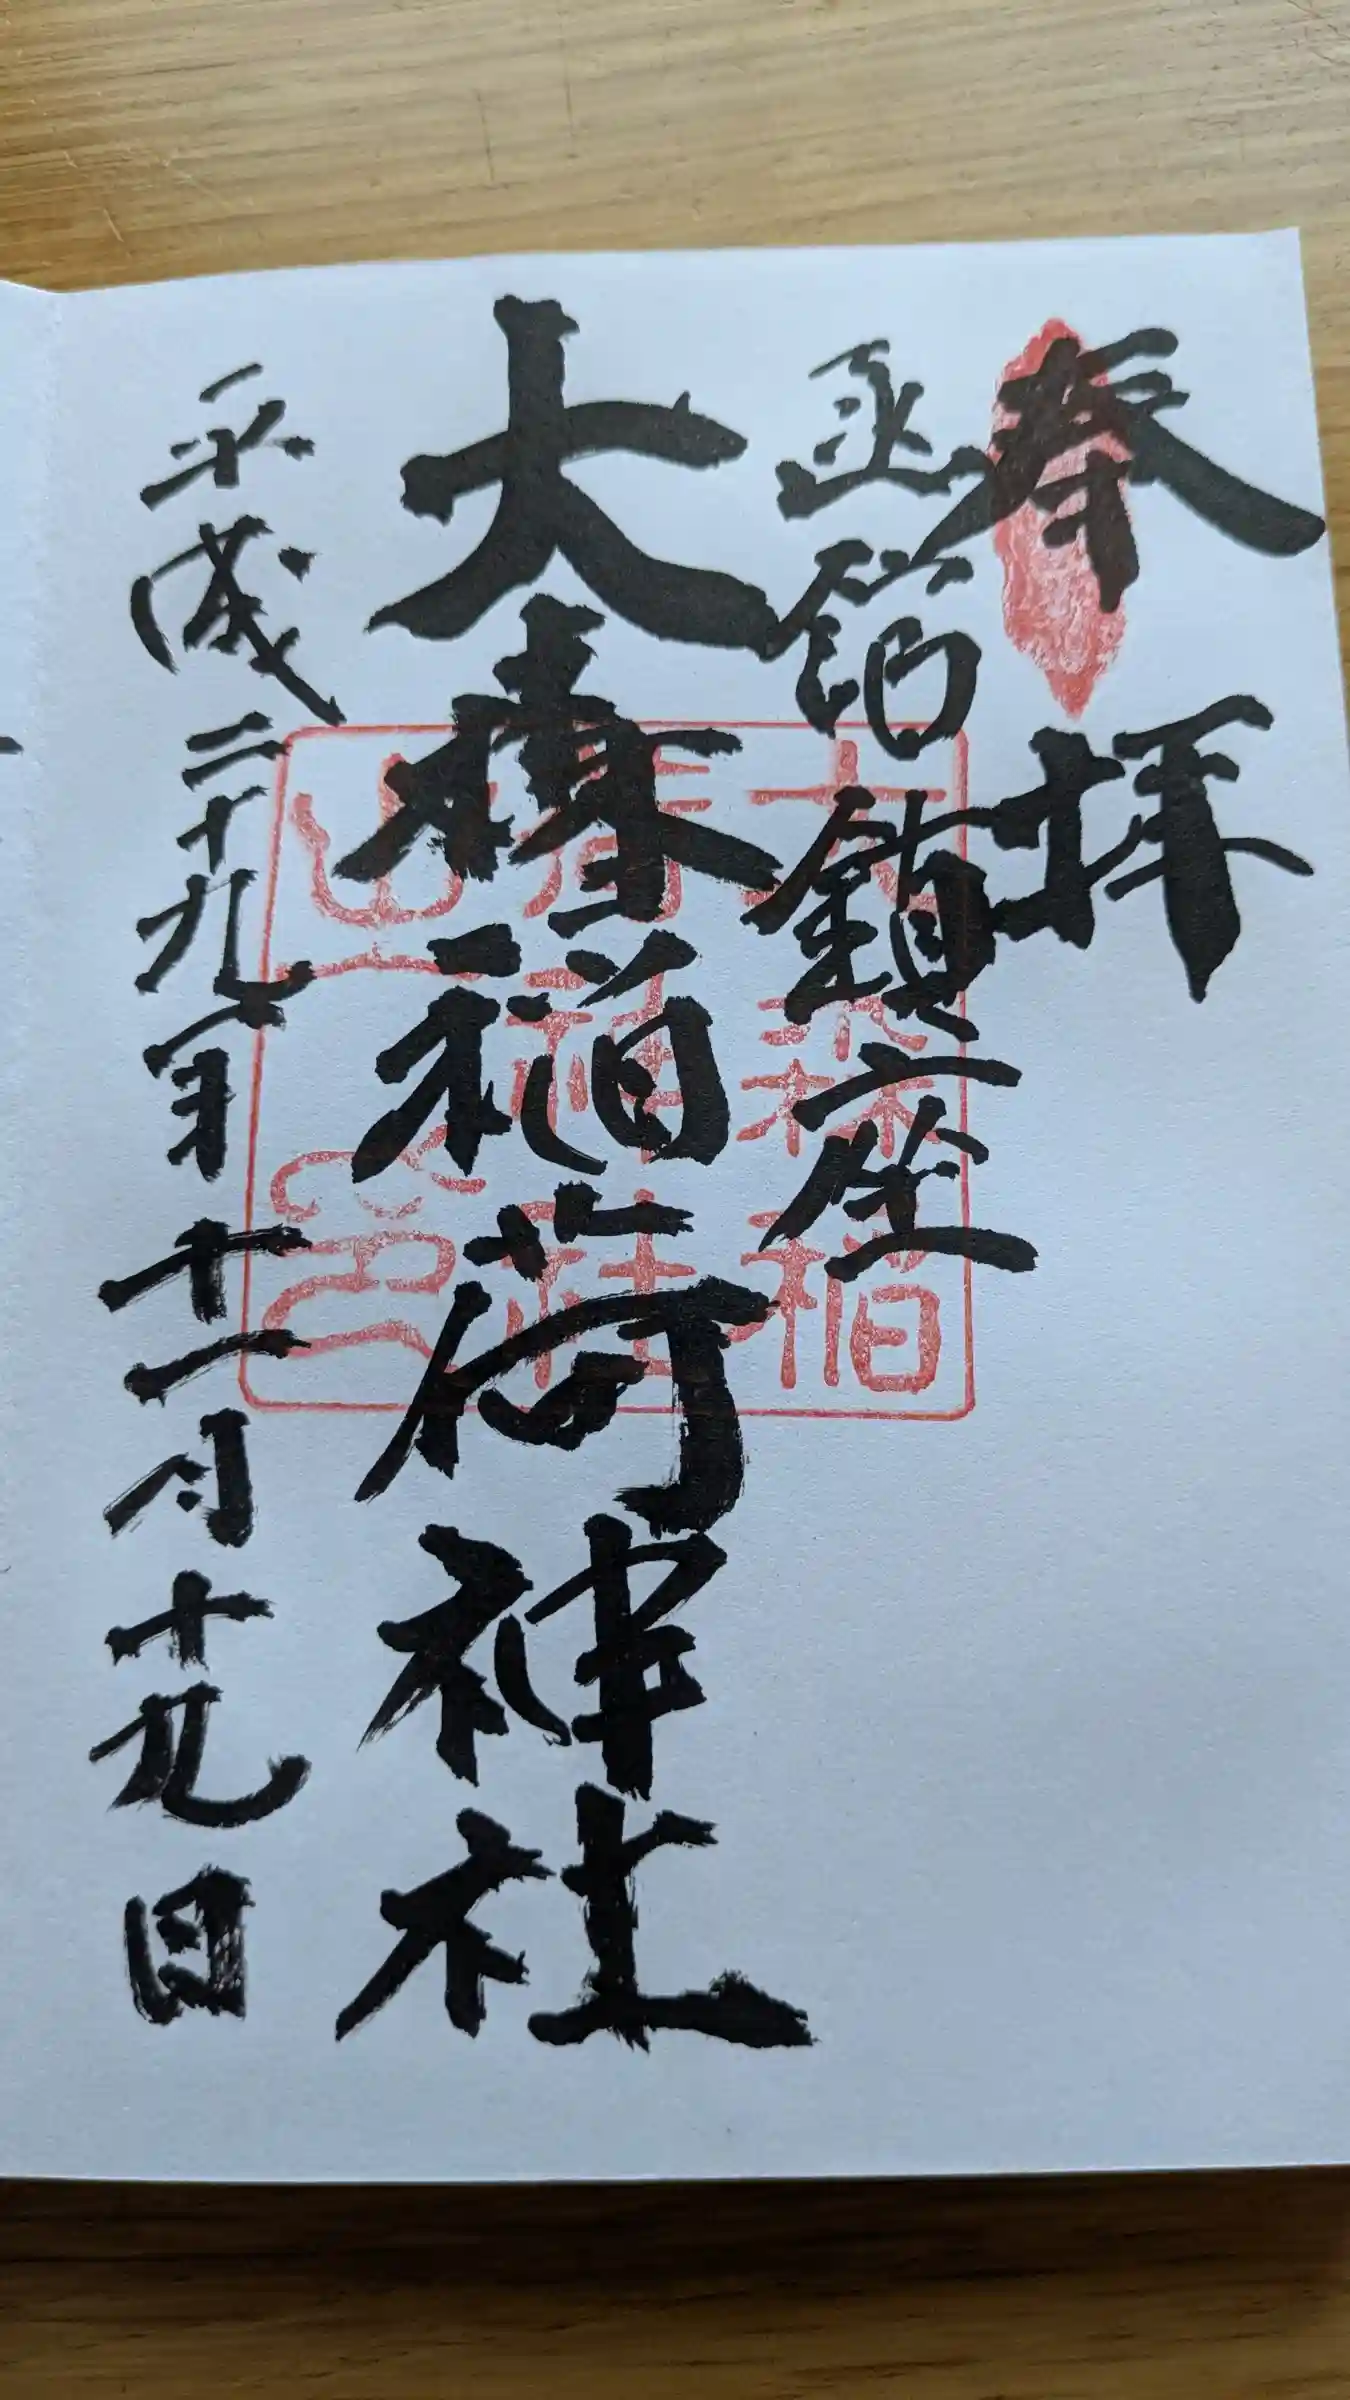 奉拝
函館鎮座
大森稲荷神社
平成二十九年十一月十九日
大森稲
荷神社
之印